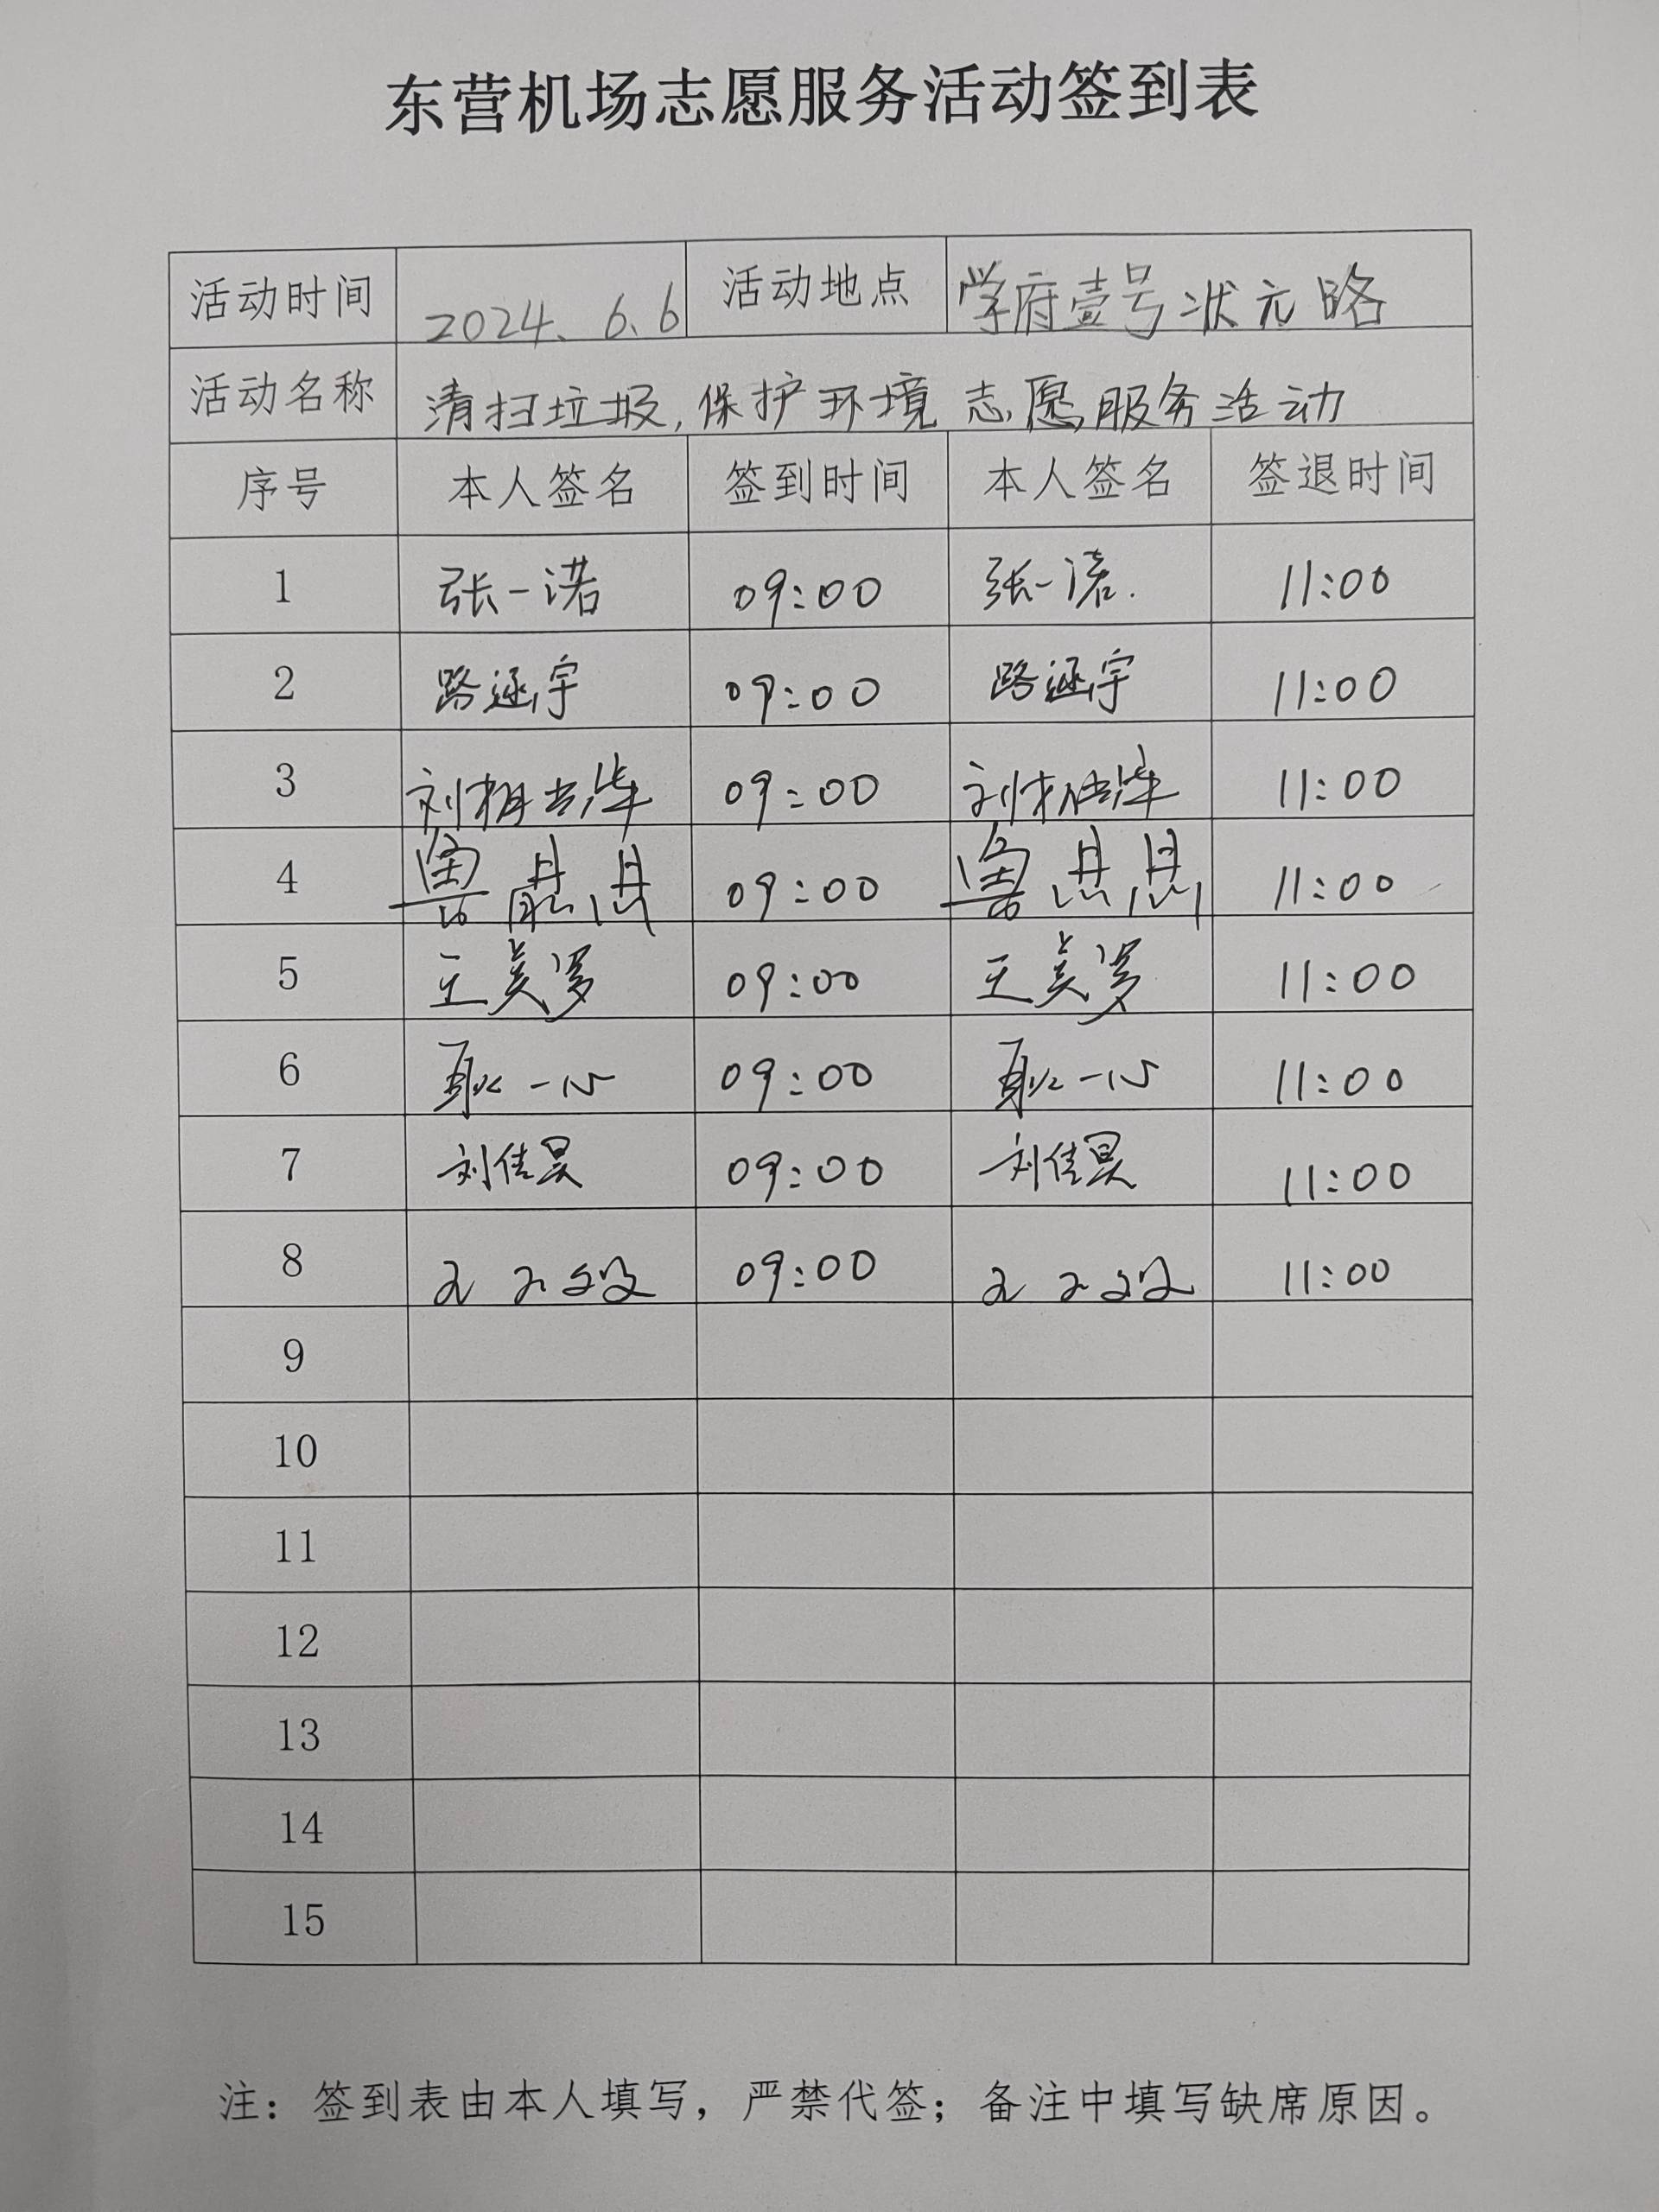 东营机场志愿服务活动签到表
活动时间 2024.6.6 活动地点 学府壹号状元路
活动名称 清扫垃圾,保护环境志愿服务活动
序号 本人签名 签到时间 本人签名 签退时间
1 张一诺 09:00 张一诺. 11:00
2 路涵宇 09:00 路涵宇 11:00
3 刘 09:00 刘 11:00
4 鲁 09:00 鲁 11:00
5 王 09:00 王 11:00
6 耿一 09:00 耿一 11:00
7 刘佳昊 09:00 刘佳昊 11:00
8 09:00 11:00
9
10
11
12
13
14
15
注：签到表由本人填写，严禁代签；备注中填写缺席原因。